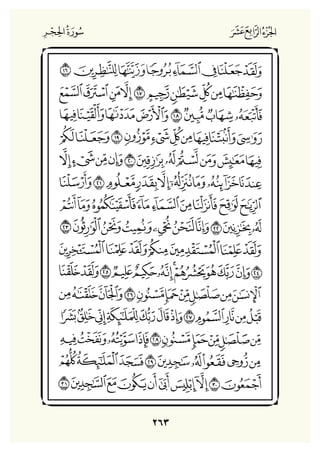 الجُزْءُ الرَّابِعَ عَشَرَ
سُورَةُ الحِجْرِ
وَلَقَدْ جَعَلْنَا فِي ٱلسَّمَآءِ بُرُوجًا وَزَيَّنَّٰهَا لِلنَّٰظِرِينَ ١٦
وَحَفِظْنَٰهَا مِن كُلِّ شَيْطَٰنٍ رَّجِيمٍ ١٧ إِلَّا مَنِ ٱسْتَرَقَ ٱلسَّمْعَ
فَأَتْبَعَهُۥ شِهَابٌ مُّبِينٌ ١٨ وَٱلْأَرْضَ مَدَدْنَٰهَا وَأَلْقَيْنَا فِيهَا
رَوَٰسِيَ وَأَنۢبَتْنَا فِيهَا مِن كُلِّ شَيْءٍ مَّوْزُونٍ ١٩ وَجَعَلْنَا لَكُمْ
فِيهَا مَعَٰيِشَ وَمَن لَّسْتُمْ لَهُۥ بِرَٰزِقِينَ ٢٠ وَإِن مِّن شَيْءٍ إِلَّا
عِندَنَا خَزَآئِنُهُۥ وَمَا نُنَزِّلُهُۥٓ إِلَّا بِقَدَرٍ مَّعْلُومٍ ٢١ وَأَرْسَلْنَا
ٱلرِّيَٰحَ لَوَٰقِحَ فَأَنزَلْنَا مِنَ ٱلسَّمَآءِ مَآءً فَأَسْقَيْنَٰكُمُوهُ وَمَآ أَنتُمْ
لَهُۥ بِخَٰزِنِينَ ٢٢ وَإِنَّا لَنَحْنُ نُحْيِۦ وَنُمِيتُ وَنَحْنُ ٱلْوَٰرِثُونَ ٢٣
وَلَقَدْ عَلِمْنَا ٱلْمُسْتَقْدِمِينَ مِنكُمْ وَلَقَدْ عَلِمْنَا ٱلْمُسْتَـْٔخِرِينَ
٢٤ وَإِنَّ رَبَّكَ هُوَ يَحْشُرُهُمْ إِنَّهُۥ حَكِيمٌ عَلِيمٌ ٢٥ وَلَقَدْ خَلَقْنَا
ٱلْإِنسَٰنَ مِن صَلْصَٰلٍ مِّنْ حَمَإٍ مَّسْنُونٍ ٢٦ وَٱلْجَآنَّ خَلَقْنَٰهُ مِن
قَبْلُ مِن نَّارِ ٱلسَّمُومِ ٢٧ وَإِذْ قَالَ رَبُّكَ لِلْمَلَٰٓئِكَةِ إِنِّي خَٰلِقٌۢ بَشَرًا
مِّن صَلْصَٰلٍ مِّنْ حَمَإٍ مَّسْنُونٍ ٢٨ فَإِذَا سَوَّيْتُهُۥ وَنَفَخْتُ فِيهِ
مِن رُّوحِي فَقَعُوا۟ لَهُۥ سَٰجِدِينَ ٢٩ فَسَجَدَ ٱلْمَلَٰٓئِكَةُ كُلُّهُمْ
أَجْمَعُونَ ٣٠ إِلَّآ إِبْلِيسَ أَبَىٰٓ أَن يَكُونَ مَعَ ٱلسَّٰجِدِينَ ٣١
٢٦٣